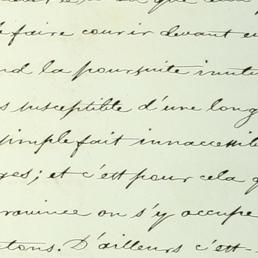 faire courir devant eu
nd la poursuite inutu
s susceptible d'une long
simple fait innaccessible
ges; et c'est pour cela q
province on s'y occupe
tons. D'ailleurs c'est-